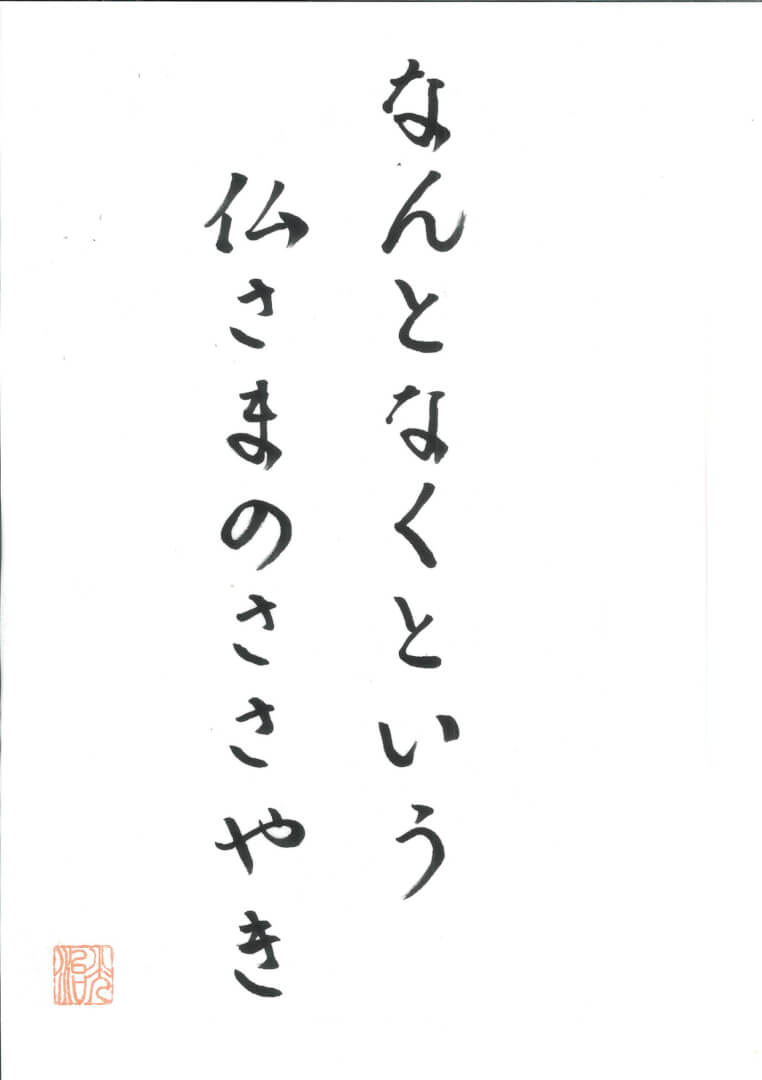 なんとなくという
仏さまのささやき